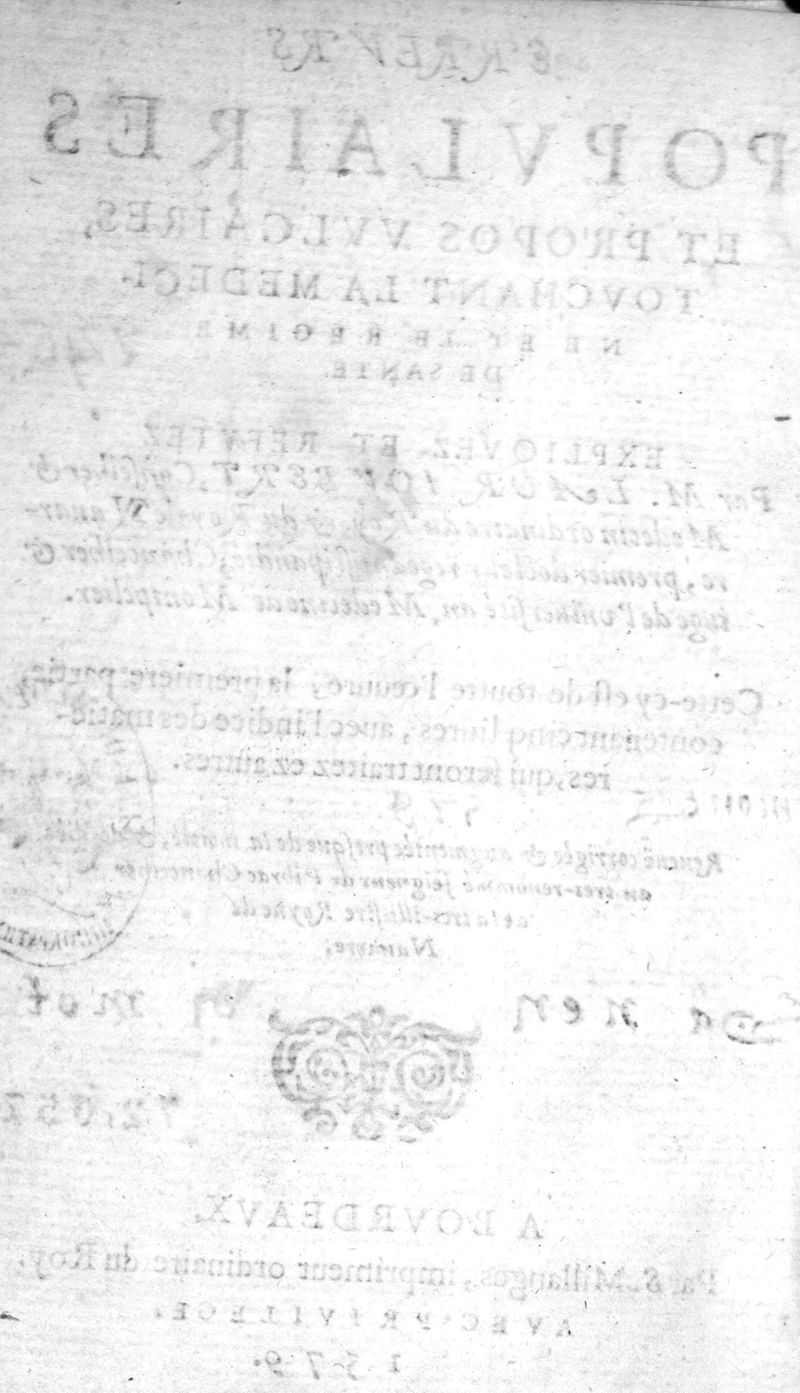 ERREVRS
POPVLAIRES
ET PROPOS VVLGAIRES,
TOVCHANT LA MEDECI-
NE ET LE REGIME
DE SANTE.
EXPLIQVEZ ET REFVTEZ
Par M. LAVR. IOVBERT, Conseiller &
Medecin ordinaire du Roy, & du Roy de Nauar-
re, premier docteur regeant, Chancelier &
iuge de l'vniuersité an Medecine de Mompelier.
Cette-cy est de toute l'œuure, la premiere partie,
contenant cinq liures, auec l'indice des matie-
res, qui seront traitez ez autres.
Reueuë corrigée & augmentée presque de la moitié,
au tres-renommé seigneur de Pibrac Chancelier
de la tres-illustre Royne de
Nauarre.
mot
72,057
A BOVRDEAVX.
Par S. Millanges, imprimeur ordinaire du Roy.
AVEC PRIVILEGE.
1579.